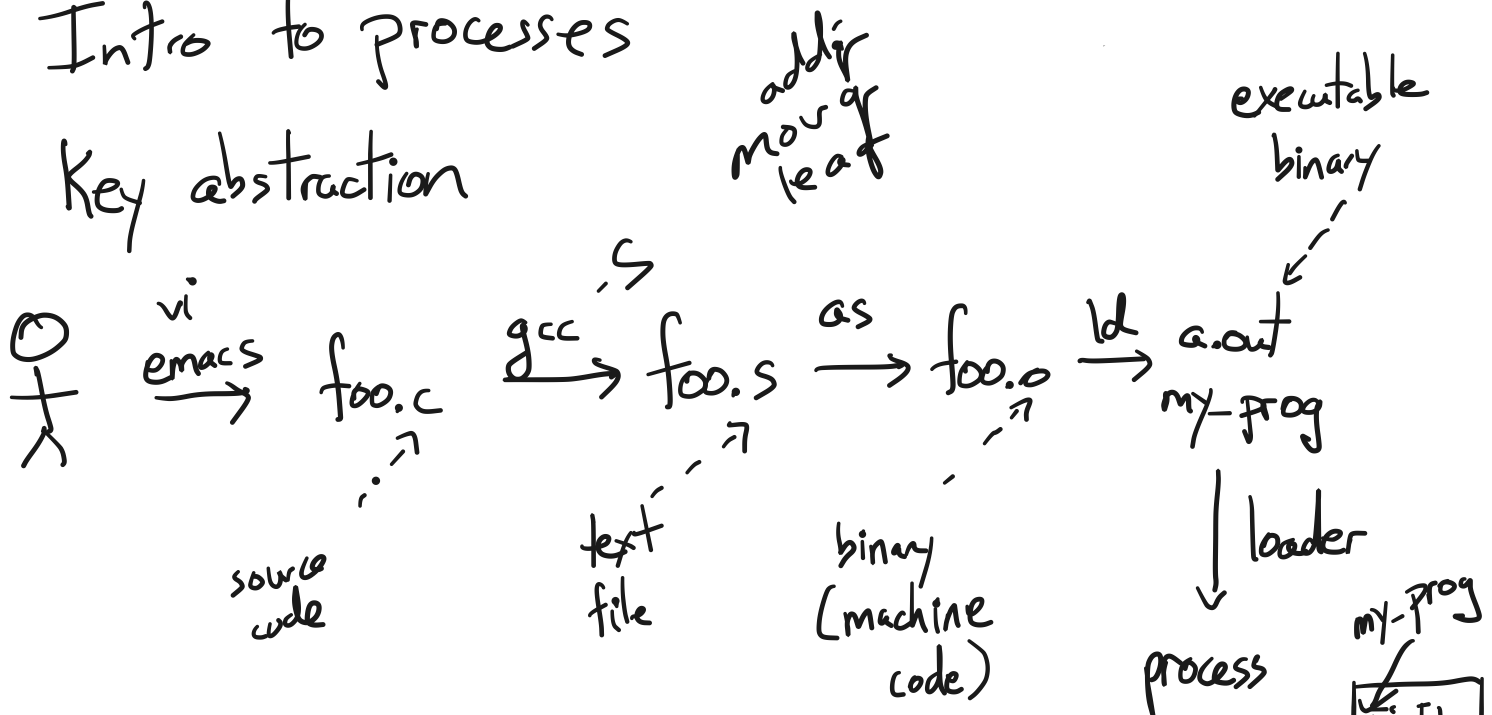 Intro to processes
Key abstraction
addq
movq
leaq
executable
binary
vi
emacs
foo.c
gcc
.S
foo.s
as
foo.o
ld
a.out
my_prog
source
code
text
file
binary
(machine
code)
loader
process
my-prog